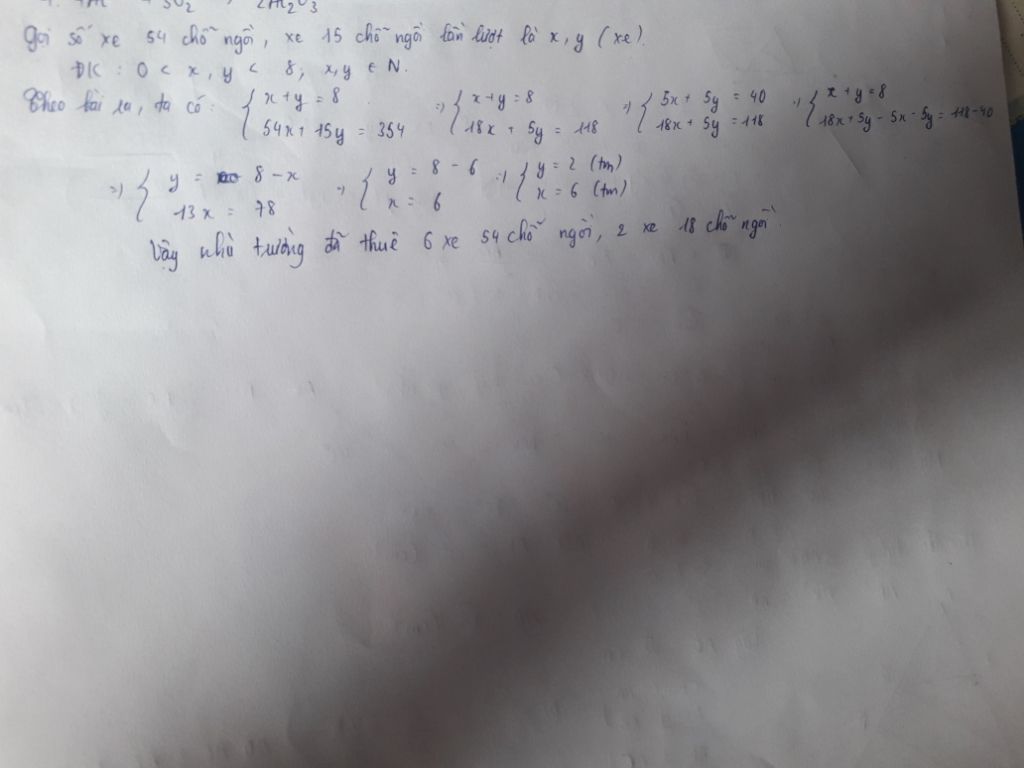 2Al2O3
Gọi số xe 54 chỗ ngồi, xe 15 chỗ ngồi lần lượt là x, y (xe).
ĐK : 0 < x, y < 8; x, y ∈ N.
Theo bài ra, ta có: { x + y = 8 54x + 15y = 354 => { x + y = 8 18x + 5y = 118 => { 5x + 5y = 40 18x + 5y = 118 => { x + y = 8 18x + 5y - 5x - 5y = 118 - 40
=> { y = 8 - x 13x = 78 => { y = 8 - 6 x = 6 => { y = 2 (tm) x = 6 (tm)
Vậy nhà trường đã thuê 6 xe 54 chỗ ngồi, 2 xe 18 chỗ ngồi.